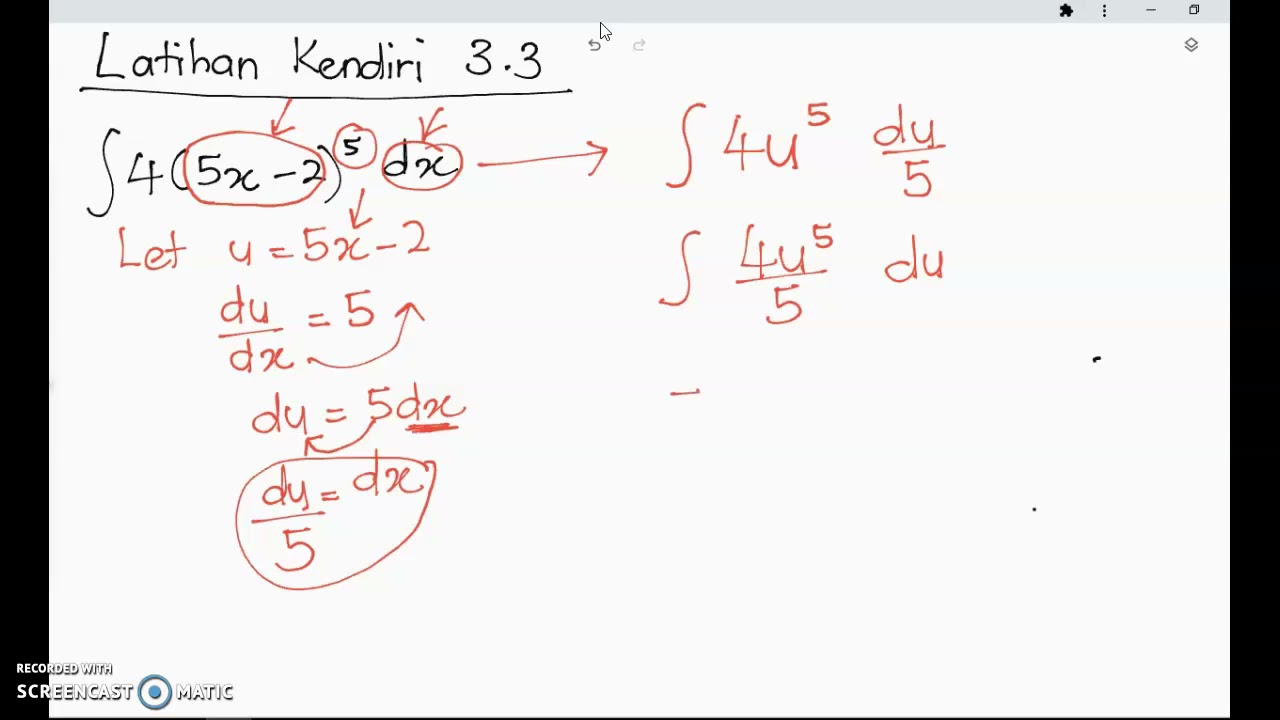 Latihan Kendiri 3.3
∫ 4(5x − 2)⁵ dx
Let u = 5x − 2
du/dx = 5
du = 5dx
du/5 = dx
∫ 4u⁵ du/5
∫ 4u⁵/5 du
RECORDED WITH
SCREENCAST MATIC